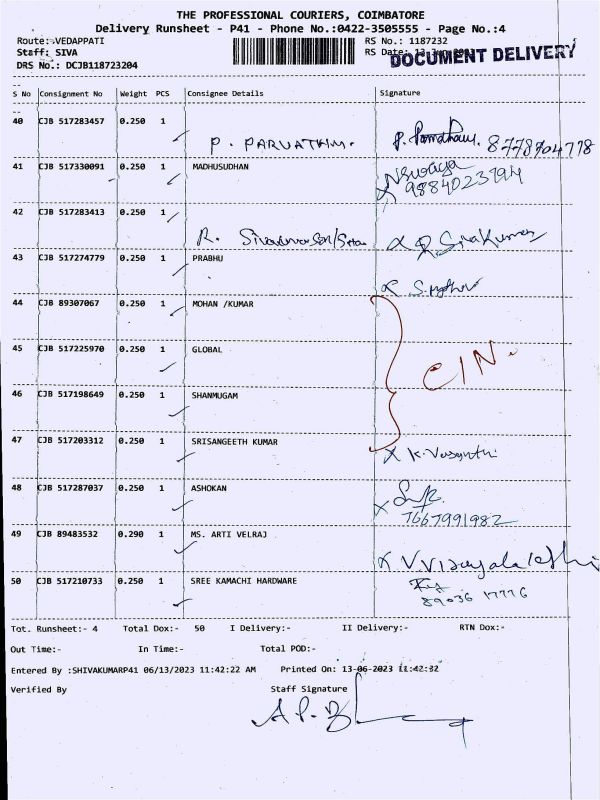 THE PROFESSIONAL COURIERS, COIMBATORE
Delivery Runsheet - P41 - Phone No.:0422-3505555 - Page No.:4
Route: VEDAPPATI
RS No.: 1187232
Staff: SIVA
RS Date:
DOCUMENT DELIVERY
DRS No.: DCJB118723204
S No Consignment No Weight PCS Consignee Details Signature
40 CJB 517283457 0.250 1 P. PARVATHI. 8778704778
41 CJB 517330091 0.250 1 MADHUSUDHAN
9884023794
42 CJB 517283413 0.250 1
R. R Sivakumar
43 CJB 517274779 0.250 1 PRABHU
44 CJB 89307067 0.250 1 MOHAN /KUMAR
45 CJB 517225970 0.250 1 GLOBAL C/N.
46 CJB 517198649 0.250 1 SHANMUGAM
47 CJB 517203312 0.250 1 SRISANGEETH KUMAR
X K. Vasanthi
48 CJB 517287037 0.250 1 ASHOKAN
7667991982
49 CJB 89483532 0.290 1 MS. ARTI VELRAJ
50 CJB 517210733 0.250 1 SREE KAMACHI HARDWARE
89036 17776
Tot. Runsheet:- 4 Total Dox:- 50 I Delivery:- II Delivery:- RTN Dox:-
Out Time:- In Time:- Total POD:-
Entered By :SHIVAKUMARP41 06/13/2023 11:42:22 AM Printed On: 13-06-2023 11:42:32
Verified By Staff Signature